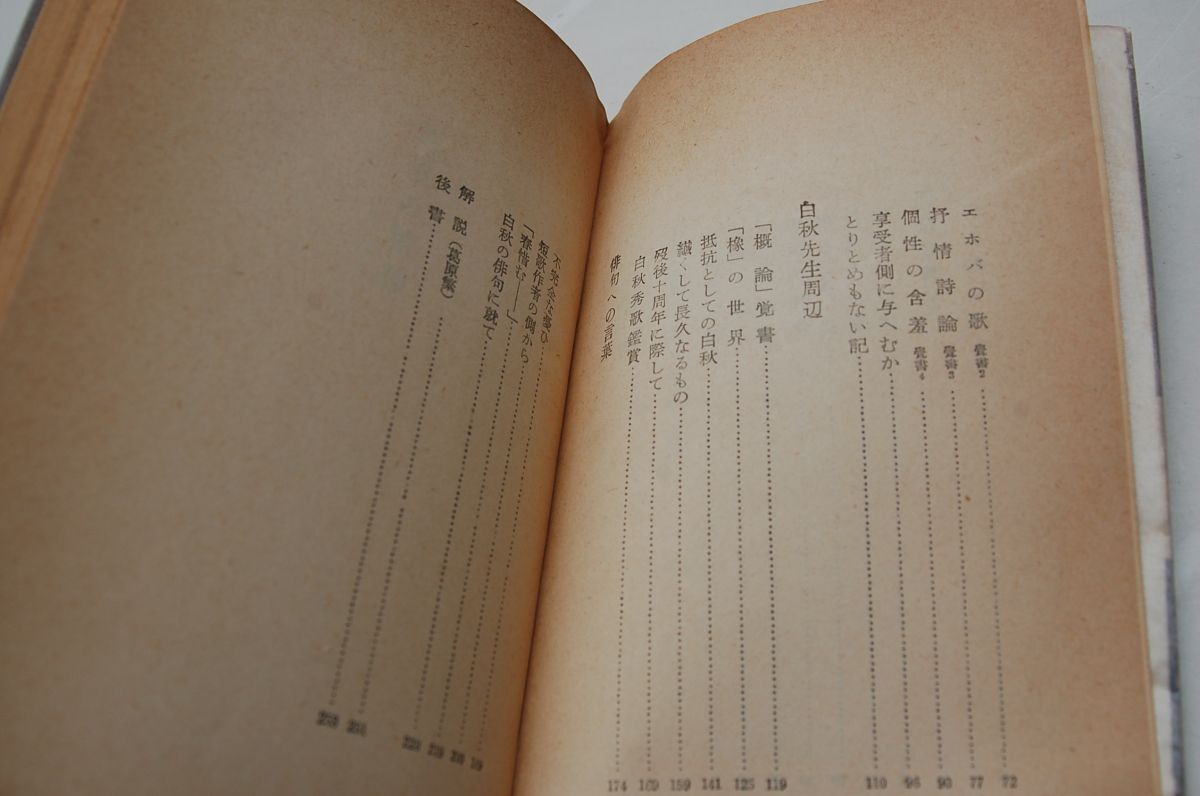 エホバの歌 覺書2 72
抒情詩論 覺書3 77
個性の含羞 覺書4 90
享受者側に与へむか 96
とりとめもない記 110
白秋先生周辺
「概論」覚書 119
「橡」の世界 125
抵抗としての白秋 141
繊くして長久なるもの 159
歿後十周年に際して 169
白秋秀歌鑑賞 174
俳句への言葉
短歌作者の側から
「春惜む――」 219
白秋の俳句に就て
解説(葛原繁)
後書